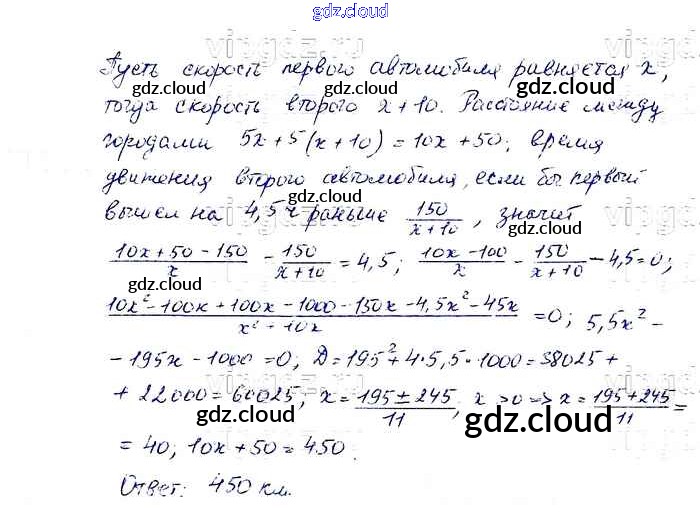 gdz.cloud
Пусть скорость первого автомобиля равняется x,
тогда скорость второго x+10. Расстояние между
городами 5x+5(x+10)=10x+50; время
движения второго автомобиля, если бы первый
вышел на 4,5 ч раньше 150/(x+10), значит
(10x+50-150)/x - 150/(x+10) = 4,5; (10x-100)/x - 150/(x+10) - 4,5=0;
(10x²-100x+100x-1000-150x-4,5x²-45x)/(x²+10x) =0; 5,5x²-
-195x-1000=0; D=195²+4·5,5·1000=38025+
+22000=60025; x=(195±245)/11; x>0=>x=(195+245)/11=
=40; 10x+50=450.
Ответ: 450 км.